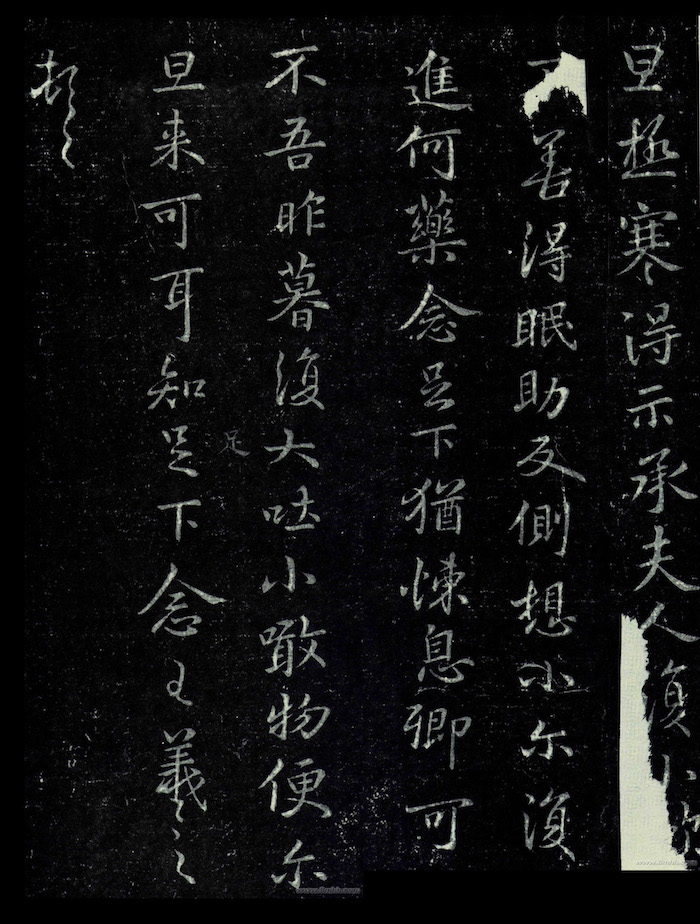 旦極寒得示承夫人復小
善得眠助反側想小尔復
進何藥念足下猶悚息卿可
不吾昨暮復大吐小噉物便尔
旦来可耳知足下念王羲之
頓〻
足